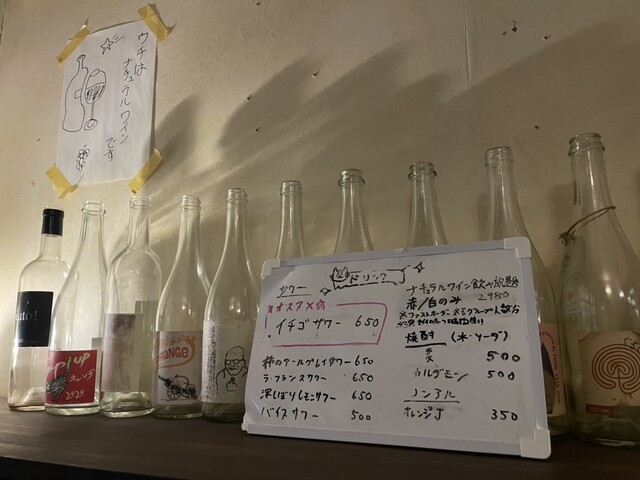 ウチは
ナチュラルワイン
です
ドリンク
サワー
オススメ
イチゴサワー 650
アールグレイサワー 650
ラ・フランスサワー 650
生しぼりレモンサワー 650
バイスサワー 500
ナチュラルワイン飲み放題
赤/白のみ 2980
焼酎 (水・ソーダ)
麦 500
カルダモン 500
ノンアル
オレンジJ 350
ORANGE
POP UP
オレンジ
2020